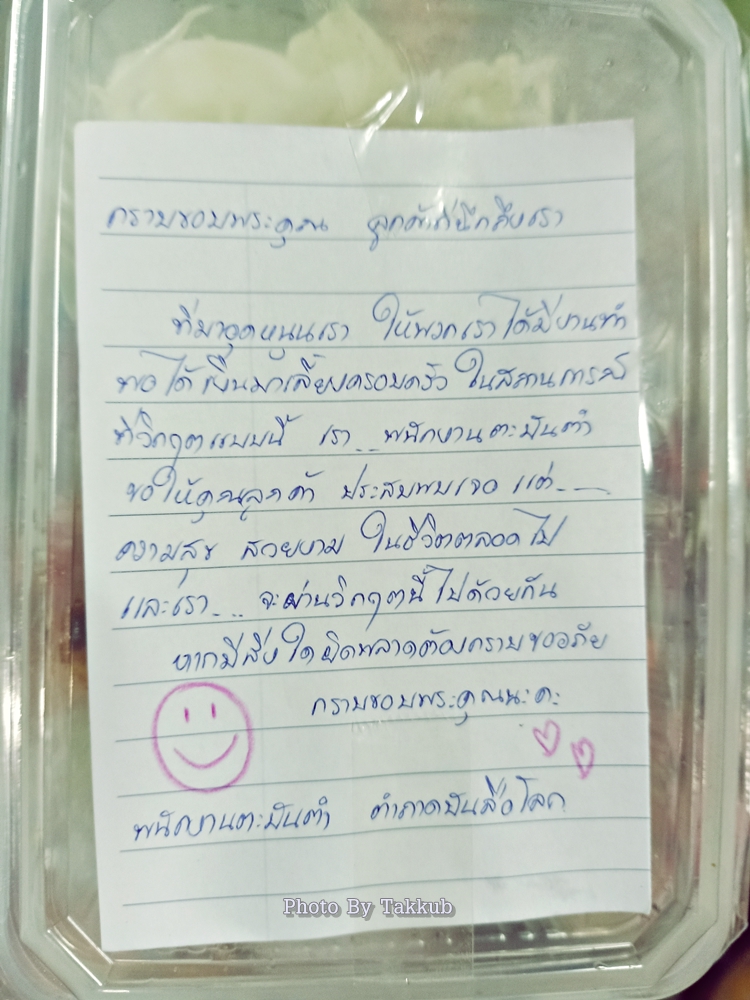 กราบขอบพระคุณ ลูกค้าที่นึกถึงเรา
ที่มาอุดหนุนเรา ให้พวกเราได้มีงานทำ
พอได้เงินมาเลี้ยงครอบครัว ในสถานการณ์
ที่วิกฤตแบบนี้ เรา... พนักงานตะบันตำ
ขอให้คุณลูกค้า ประสบพบเจอ แต่....
ความสุข สวยงาม ในชีวิตตลอดไป
และเรา... จะผ่านวิกฤตนี้ไปด้วยกัน
หากมีสิ่งใดผิดพลาดต้องกราบขออภัย
กราบขอบพระคุณนะคะ
พนักงานตะบันตำ ตำถาดบันลือโลก
Photo By Takkub